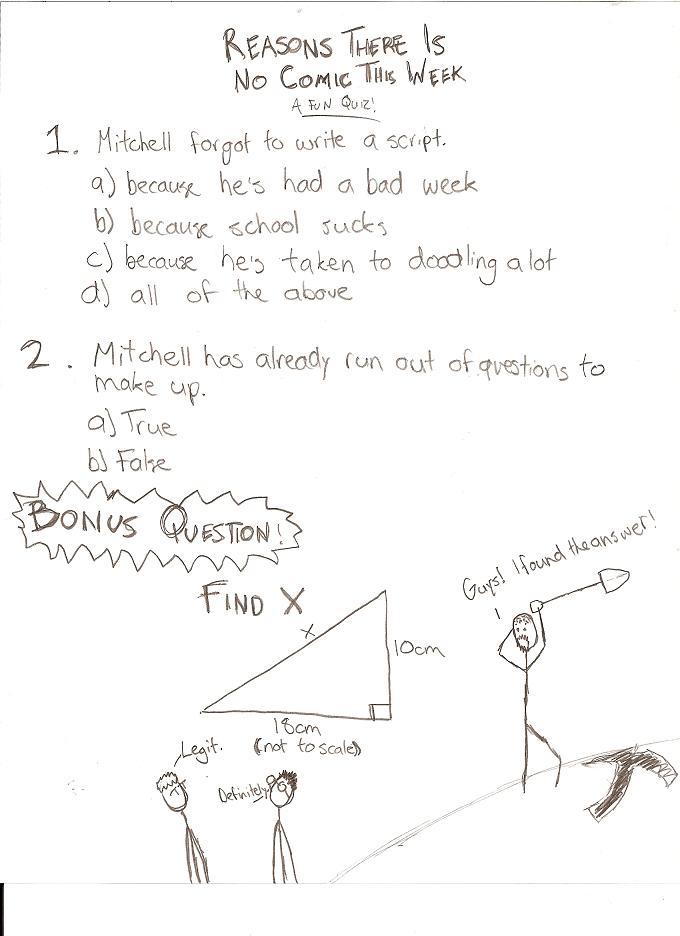 REASONS THERE IS
NO COMIC THIS WEEK
A FUN QUIZ!
1. Mitchell forgot to write a script.
a) because he's had a bad week
b) because school sucks
c) because he's taken to doodling a lot
d) all of the above
2. Mitchell has already run out of questions to
make up.
a) True
b) False
BONUS QUESTION!
FIND X
x
10cm
18cm
(not to scale)
Guys! I found the answer!
Legit.
Definitely.